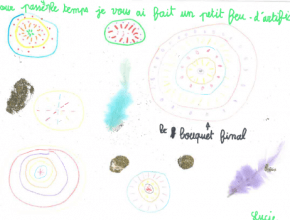 passe temps je vous ai fait un petit feu-d'artific
le bouquet final
Lucie